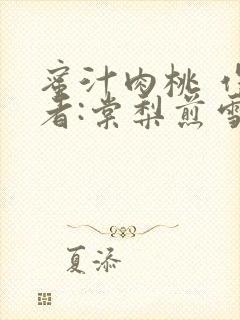 蜜汁肉桃
者:棠梨煎雪
夏添